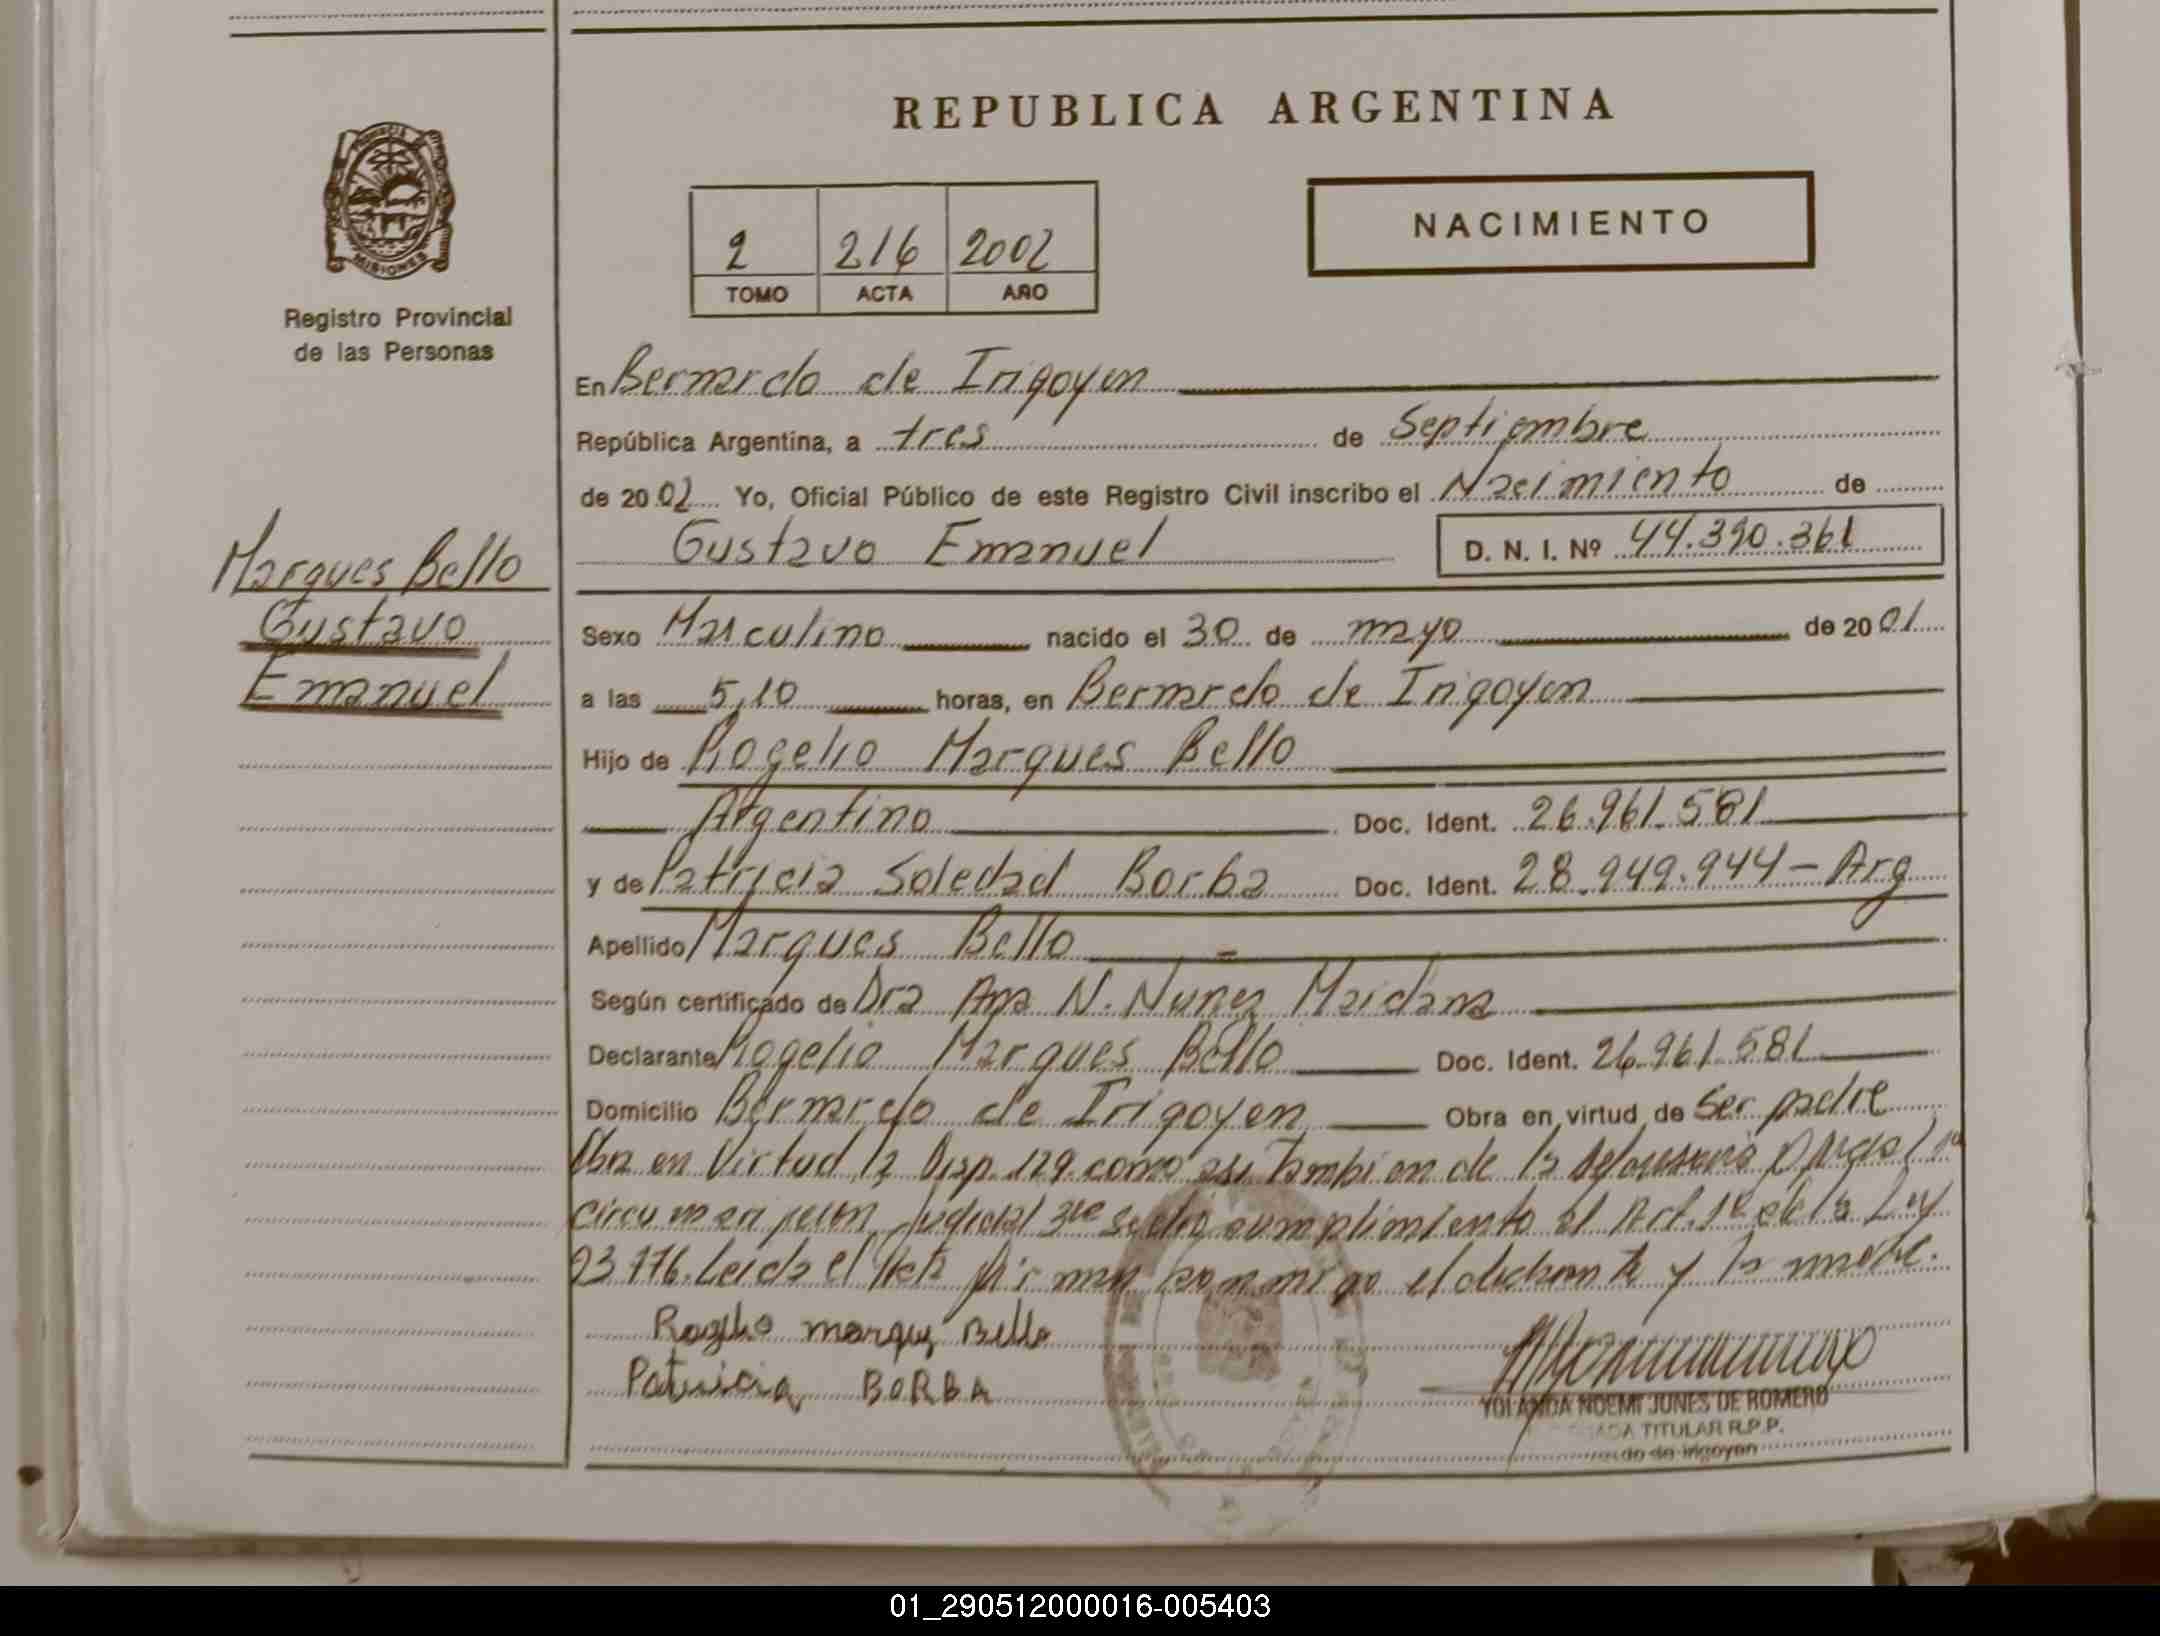 REPUBLICA ARGENTINA
PROVINCIA
MISIONES
Registro Provincial
de las Personas
2 216 2002
TOMO ACTA AÑO
NACIMIENTO
En Bernardo de Irigoyen
República Argentina, a tres de Septiembre
de 2002 Yo, Oficial Público de este Registro Civil inscribo el Nacimiento de
Gustavo Emanuel D. N. I. Nº 44.390.361
Marques Bello
Gustavo
Emanuel
Sexo Masculino nacido el 30 de mayo de 2001
a las 5,10 horas, en Bernardo de Irigoyen
Hijo de Rogelio Marques Bello
Argentino Doc. Ident. 26.961.581
y de Patricia Soledad Borba Doc. Ident. 28.949.944 - Arg
Apellido Marques Bello
Según certificado de Dra Ana N. Nunez Maidana
Declarante Rogelio Marques Bello Doc. Ident. 26.961.581
Domicilio Bernardo de Irigoyen Obra en virtud de Ser padre
Obra en Virtud la Disp. 129 como asi Tambien de la
Judicial cumplimiento al Art. 1º de la Ley
Leida el Acta firman conmigo el declarante y la madre.
Rogelio marques Bello
Patricia BORBA
YOLANDA NOEMI JUNES DE ROMERO
TITULAR R.P.P.
de Irigoyen
01_290512000016-005403